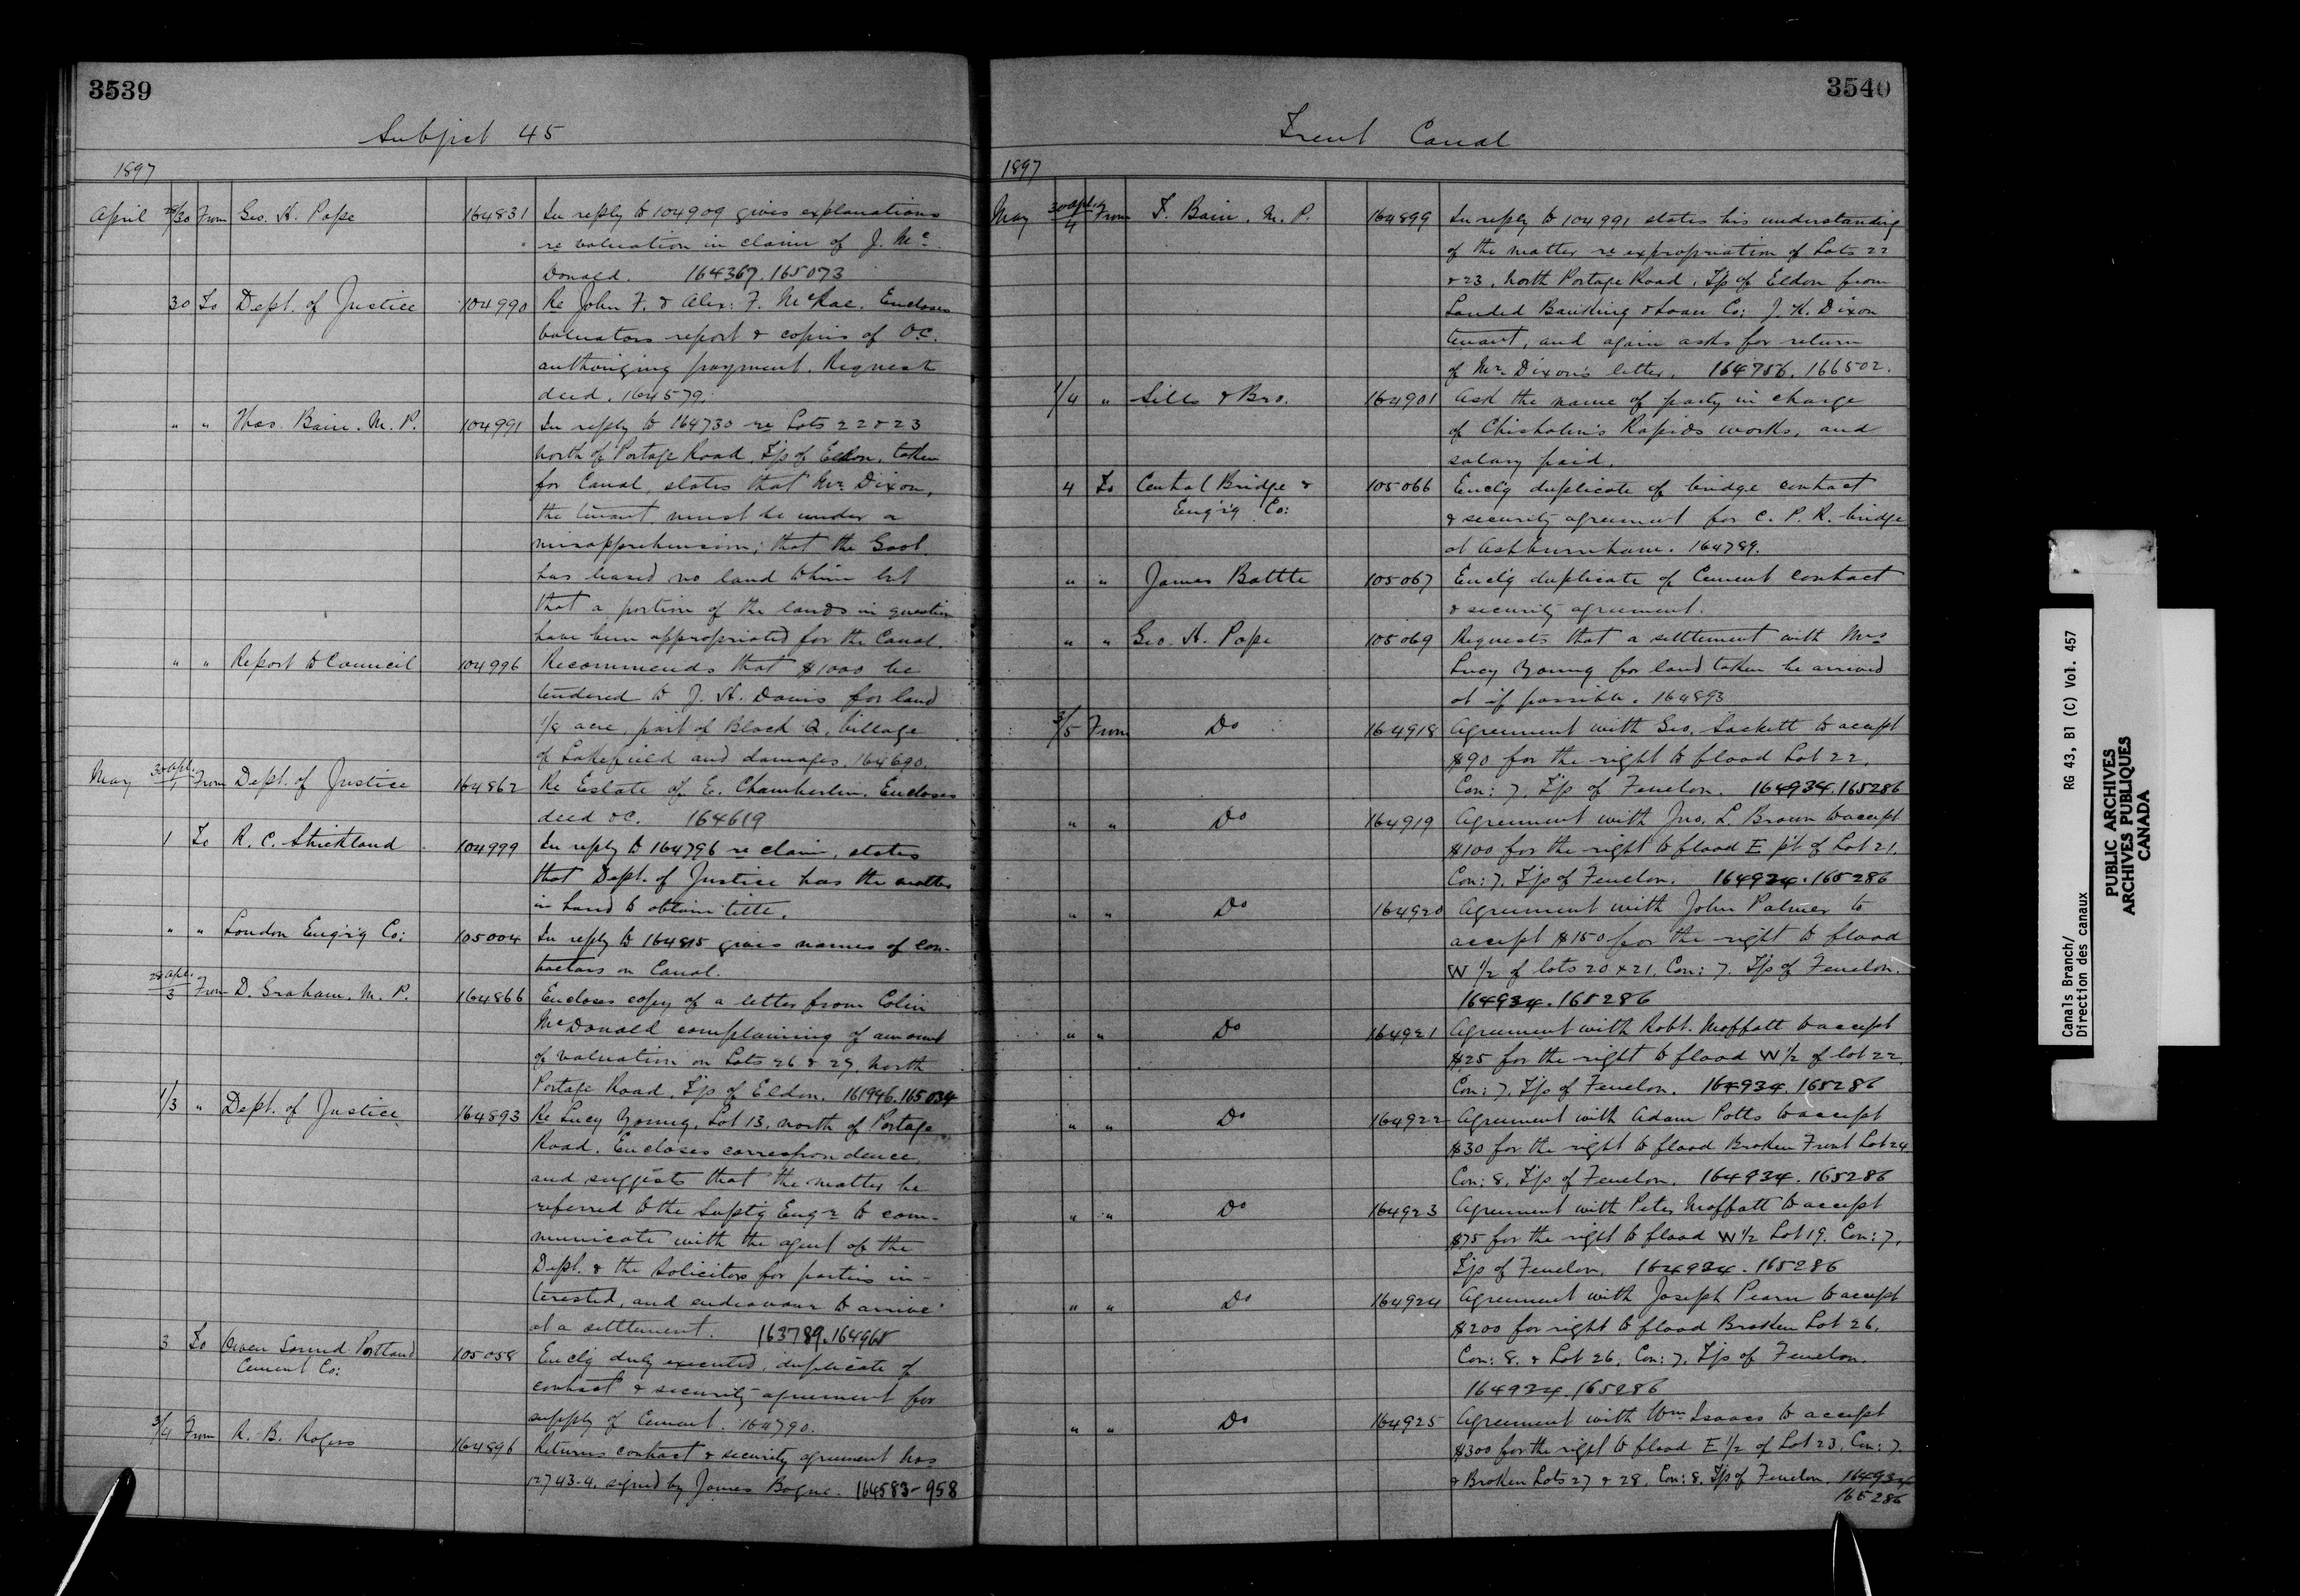 3539
Subject 45
1897
April 29/30 From Geo. A. Pope 164831 In reply to 104909 gives explanations
re valuation in claim of J. Mc
Donald. 164367. 165073
30 To Dept. of Justice 104990 Re John F. & Alex: F. McRae. Encloses
valuators report & copies of O.C.
authorizing payment. Request
deed. 164579.
" " Thos. Bain. M. P. 104991 In reply to 164730 re Lots 22 & 23
North of Portage Road, T/p of Eldon, taken
for Canal, states that Mr. Dixon,
the tenant must be under a
misapprehension; that the Govt.
has leased no land to him but
that a portion of the lands in question
have been appropriated for the Canal.
" " Report to Council 104996 Recommends that $1000 be
tendered to J. H. Davis for land
1/8 acre, part of Block Q, Village
of Lakefield and damages. 164690.
May 30 Apl./1 From Dept. of Justice 164862 Re Estate of E. Chamberlin. Encloses
deed &c. 164619
1 To R. C. Strickland 104999 In reply to 164796 re claim, states
that Dept. of Justice has the matter
in hand to obtain title.
" " London Eng'r'g Co: 105004 In reply to 164815 gives names of con-
tractors on Canal.
28 Apl./3 From D. Graham. M. P. 164866 Encloses copy of a letter from Colin
McDonald complaining of amount
of valuation on Lots 26 & 27, North
Portage Road, T/p of Eldon. 161996. 165034
1/3 " Dept. of Justice 164893 Re Lucy Young, Lot 13, north of Portage
Road. Encloses correspondence,
and suggests that the matter be
referred to the Supt'g Engr to com-
municate with the agent of the
Dept. & the Solicitors for parties in-
terested, and endeavour to arrive
at a settlement. 163789. 164968
3 To Owen Sound Portland 105058 Encl'g duly executed, duplicate of
Cement Co: contract & security agreement for
supply of Cement. 164790.
3/4 From R. B. Rogers 164896 Returns contract & security agreement Nos
12743-4, signed by James Bogue. 164583-958
3540
Trent Canal
1897
May 30 Apl./4 From T. Bain. M. P. 164899 In reply to 104991 states his understanding
of the matter re expropriation of Lots 22
& 23, North Portage Road, T/p of Eldon from
Landed Banking & Loan Co: J. K. Dixon
tenant, and again asks for return
of Mr. Dixon's letter. 164756. 166502.
1/4 " Sills & Bro. 164901 Ask the name of party in charge
of Chisholm's Rapids works, and
salary paid.
4 To Central Bridge & 105066 Encl'g duplicate of bridge contract
Eng'r'g Co: & security agreement for C. P. R. bridge
at Ashburnham. 164789.
" " James Battle 105067 Encl'g duplicate of Cement contract
& security agreement.
" " Geo. A. Pope 105069 Requests that a settlement with Mrs
Lucy Young for land taken be arrived
at if possible. 164893
3/5 From Do 164918 Agreement with Geo. Sackett to accept
$90 for the right to flood Lot 22,
Con: 7, T/p of Fenelon. 164934. 165286
" " Do 164919 Agreement with Jno. L. Brown to accept
$100 for the right to flood E pt of Lot 21,
Con: 7. T/p of Fenelon. 164934. 165286
" " Do 164920 Agreement with John Palmer to
accept $150 for the right to flood
W 1/2 of lots 20 & 21, Con: 7. T/p of Fenelon.
164934. 165286
" " Do 164921 Agreement with Robt. Moffatt to accept
$25 for the right to flood W 1/2 of lot 22,
Con: 7. T/p of Fenelon. 164934. 165286
" " Do 164922 Agreement with Adam Potts to accept
$30 for the right to flood Broken Front Lot 24,
Con: 8, T/p of Fenelon. 164934. 165286
" " Do 164923 Agreement with Peter Moffatt to accept
$75 for the right to flood W 1/2 Lot 19. Con: 7,
T/p of Fenelon. 164934. 165286
" " Do 164924 Agreement with Joseph Pearn to accept
$200 for right to flood Broken Lot 26,
Con: 8. & Lot 26, Con: 7, T/p of Fenelon.
164934. 165286
" " Do 164925 Agreement with Wm Isaacs to accept
$300 for the right to flood E 1/2 of Lot 23, Con: 7.
& Broken Lots 27 & 28, Con: 8, T/p of Fenelon. 164934
165286
Canals Branch/
Direction des canaux
RG 43, B1 (C) Vol. 457
PUBLIC ARCHIVES
ARCHIVES PUBLIQUES
CANADA